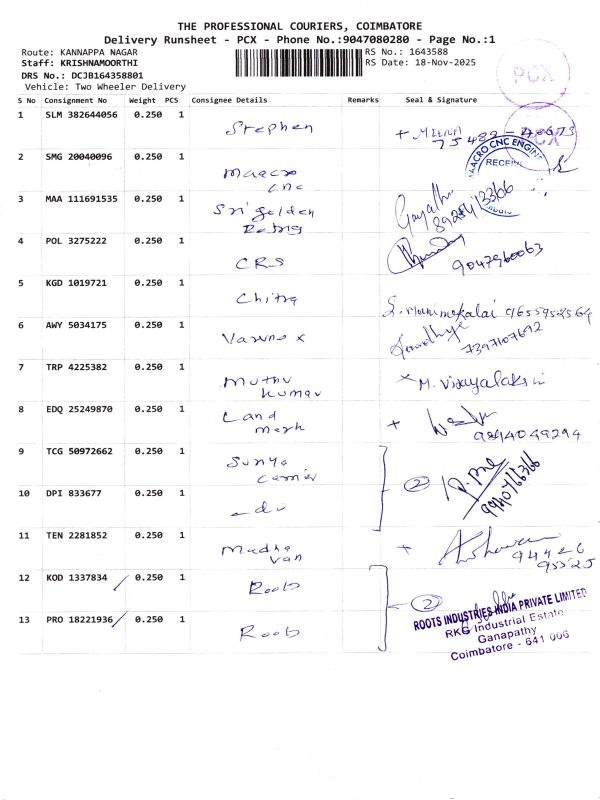 THE PROFESSIONAL COURIERS, COIMBATORE
Delivery Runsheet - PCX - Phone No.:9047080280 - Page No.:1
Route: KANNAPPA NAGAR RS No.: 1643588
Staff: KRISHNAMOORTHI RS Date: 18-Nov-2025
DRS No.: DCJB164358801
Vehicle: Two Wheeler Delivery
PCX
S No Consignment No Weight PCS Consignee Details Remarks Seal & Signature
1 SLM 382644056 0.250 1 Stephen + MEENA
PCX
2 SMG 20040096 0.250 1 Maacro cnc MAACRO CNC ENGIN RECEIV
3 MAA 111691535 0.250 1 Sri golden Gayathri
4 POL 3275222 0.250 1 CRS 9047960063
5 KGD 1019721 0.250 1 Chitra S. Manimekalai 9655952564
6 AWY 5034175 0.250 1 7397107692
7 TRP 4225382 0.250 1 Muthu Kumar M. Vijayalakshmi
8 EDQ 25249870 0.250 1 Land Mark + 9894049294
9 TCG 50972662 0.250 1 Surya Carrier 2 9940766366
10 DPI 833677 0.250 1 - do
11 TEN 2281852 0.250 1 Madha van + 94426 95525
12 KOD 1337834 0.250 1 Roots 2
13 PRO 18221936 0.250 1 Roots
ROOTS INDUSTRIES INDIA PRIVATE LIMITED
RKG Industrial Estate
Ganapathy
Coimbatore - 641 006